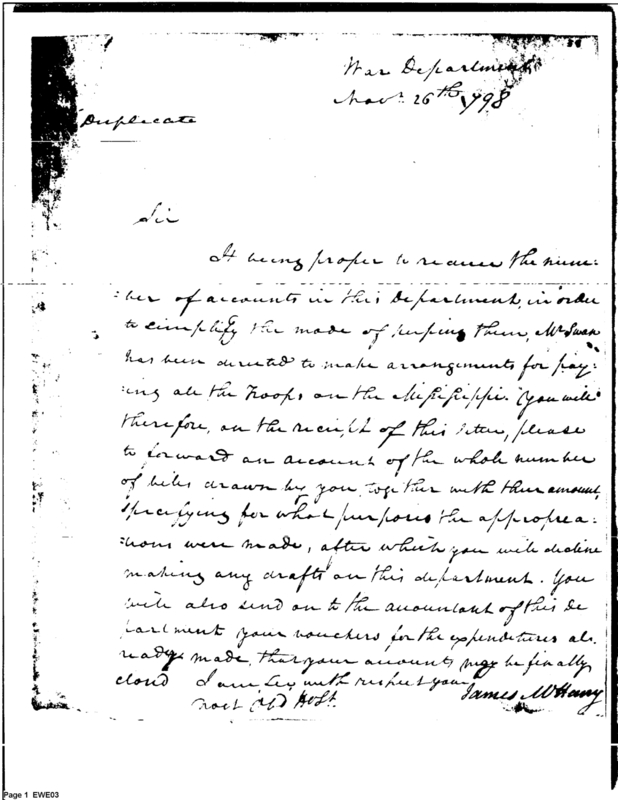 War Department
Novr. 26th 1798
Duplicate
Sir
It being proper to reduce the num-
=ber of accounts in this Department, in order
to simplify the mode of keeping them, Mr Swan
has been directed to make arrangements for pay-
=ing all the Troops on the Mississippi. You will
therefore, on the receipt of this letter, please
to forward an account of the whole number
of bills drawn by you, together with their amount,
specifying for what purposes the appropria-
=tions were made, after which you will decline
making any drafts on this department. You
will also send on to the accountant of this de
partment your vouchers for the expenditures al-
ready made, that your accounts may be finally
closed I am Sir, with respect your
most Obd Hbl St.
James McHenry
Page 1 EWE03